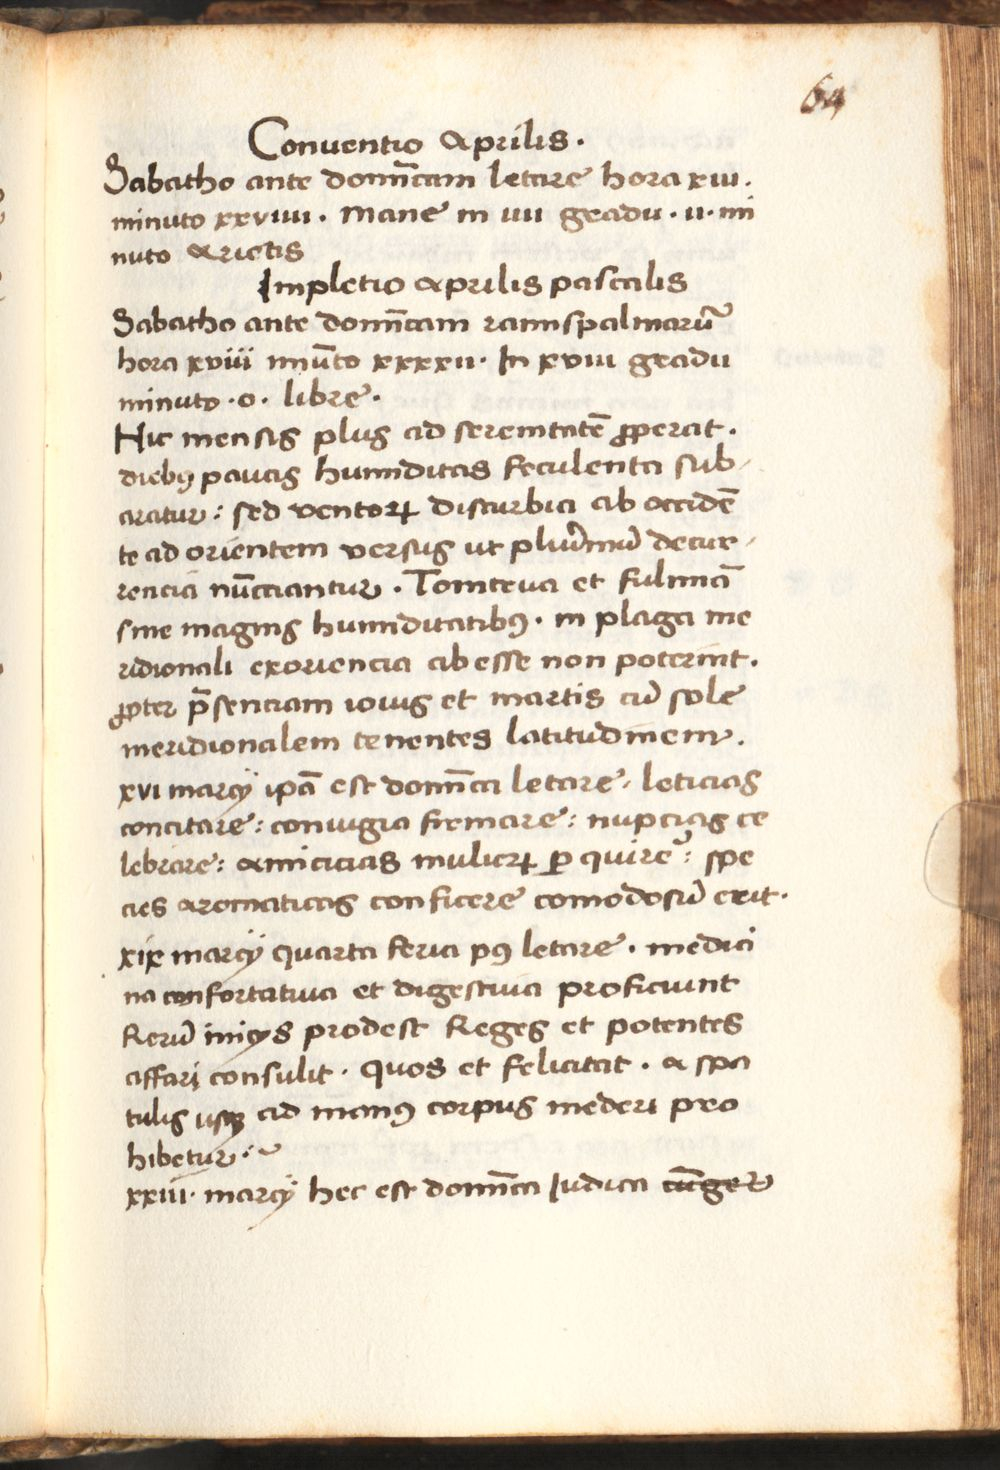 64
Conuentio Aprilis.
Sabatho ante domīcam letare hora xiii.
minuto xxviiii. Mane in iiii gradu. ii. mi
nuto Arietis
Impletio Aprilis pascalis
Sabatho ante domīcam ramispalmarū
hora xviii miūto xxxxii. In xviii gradu
minuto .o. libre.
Hic mensis plus ad serenitatē ꝓperat.
diebꝰ paucis humiditas feculenta sub-
aratur: sed ventoꝝ disturbia ab occidē
te ad orientem versus ut plurimū decur-
rencia nūcciantur. Tonitrua et fulmīa
sine magnis humiditatibꝰ. in plaga me
ridionali exoriencia abesse non poterint.
ꝓpter p̄senciam iouis et martis cū sole
meridionalem tenentes latitudinem.
xvi marcij ipā est domīca letare, leticias
concitare: coniugia firmare: nupcias ce
lebrare: amicicias mulieꝝ ꝑquire: spe
cies aromaticas conficere comodosū erit.
xix marcij quarta feria pꝰ letare. medici
na confortatiua et digestiua proficiunt
Rerū inicijs prodest Reges et potentes
affari consulit. quos et felicitat. a spa
tulis usqꝫ ad manꝰ corpus mederi pro
hibetur.
xxiii. marcij hec est domīca Iudica